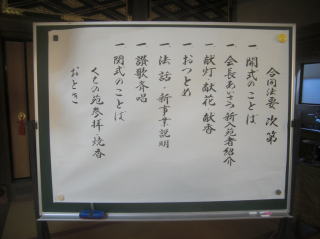 合同法要 次第
一 開式のことば
一 会長あいさつ 新入苑者紹介
一 献灯 献花 献香
一 おつとめ
一 法話・新事業説明
一 讃歌斉唱
一 閉式のことば
くらの苑参拝・焼香
おとき